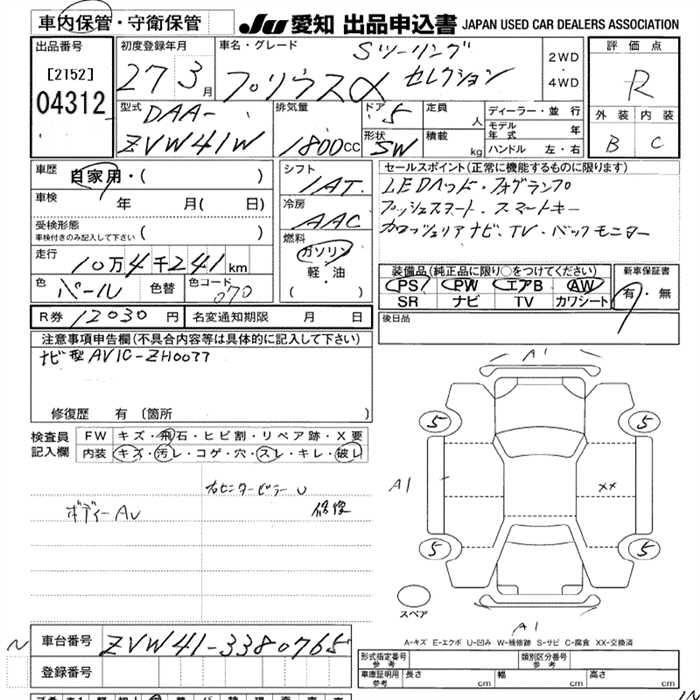 車内保管・守衛保管
JU 愛知 出品申込書 JAPAN USED CAR DEALERS ASSOCIATION
出品番号
[2152]
04312
初度登録年月
27 3 月
車名・グレード
プリウスα Sツーリング
セレクション
2WD
・
4WD
評価点
R
外装 内装
B C
型式
DAA-
ZVW41W
排気量
1800cc
ドア 5
形状 SW
定員 人
積載 kg
ディーラー・並行
モデル年式 年
ハンドル 左・右
車歴
自家用・( )
車検 年 月( 日)
受検形態
車検付きのみ記入して下さい ( )
走行 10万4千241km
色 パール 色替 色コード 070
R券 12030円 名変通知期限 月 日
シフト
1AT
冷房
AAC
燃料
ガソリン
軽・油
( )
セールスポイント(正常に機能するものに限ります)
LEDヘッド・フォグランプ
プッシュスタート・スマートキー
カロッツェリアナビ、TV・バックモニター
装備品(純正品に限り○をつけてください)
PS PW エアB AW
SR ナビ TV カワシート
新車保証書
有・無
後日品
注意事項申告欄(不具合内容等は具体的に記入して下さい)
ナビ型AVIC-ZH0077
修復歴 有(箇所 )
検査員
記入欄
FW キズ・飛石・ヒビ割・リペア跡・X要
内装 キズ・汚レ・コゲ・穴・スレ・キレ・破レ
右センターピラーU
ボディーAU 修復
A1
5 5
A1 XX
5 5
スペア
A1
A-キズ E-エクボ U-凹み W-補修跡 S-サビ C-腐食 XX-交換済
車台番号 ZVW41-3380765
登録番号
形式指定番号
参考
類別区分番号
参考
車庫証明用
参考
長さ cm 幅 cm 高さ cm